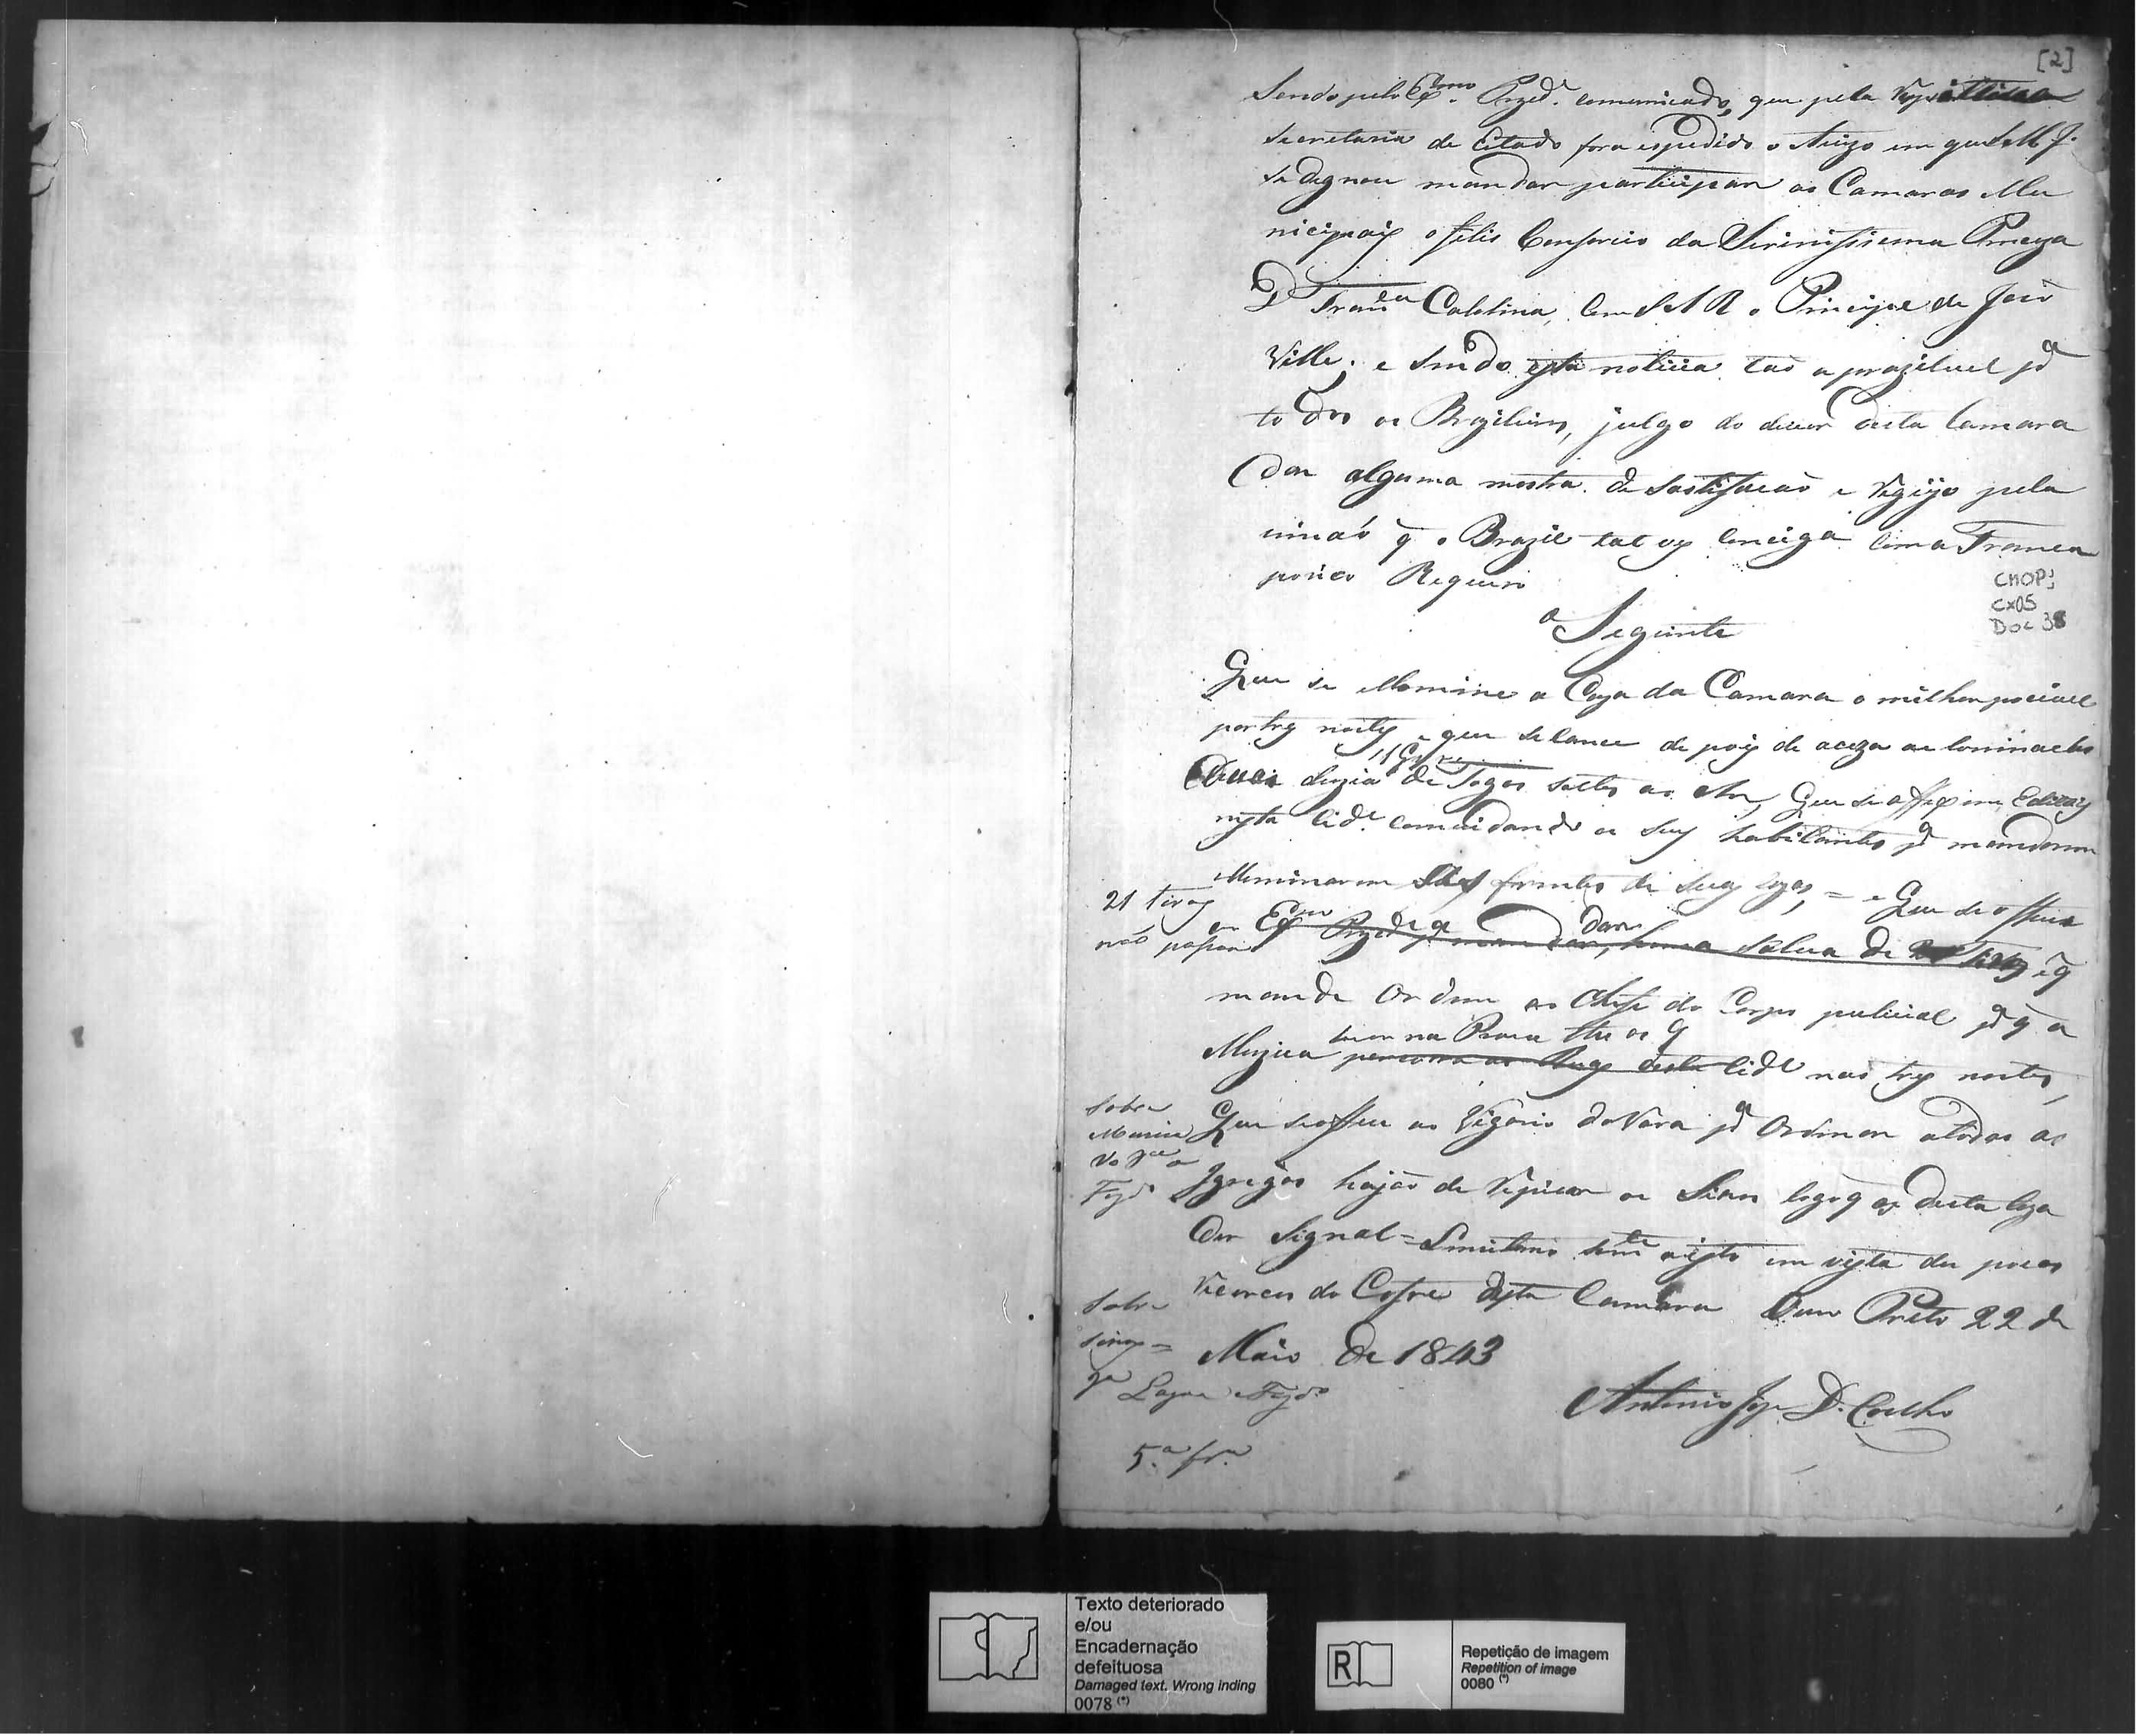 [2]
Sendo pelo Exmo Prezde comunicado, que pela
Secretaria de Estado fora espedido o Avizo em que S M I
se dignou mandar participar as Camaras Mu
nicipais o felis Consorcio da Serinissima Princeza
D Franca Carolina, com S A R o Principe de Join
Ville; e sendo esta noticia tão aprazivel pa
todos os Brazileiros, julgo do dever desta Camara
dar alguma mostra de Sastifacão e Regijo pela
união q o Brazil tal vez consiga com a Franca
por isso Requeiro
CMOP;
CX05
DOC 38
o Seguinte
Que se illomine a Caza da Camara o milhor pocivel
por tres noites e que se lance depois de aceza as lominacões
duzia de Fogos soltos ao Ar, Que se affixem Editais
nesta Cide comvidando os seus habitantes pa mandarem
illiminarem frentes de suas cazas, = e Que se officie
21 tiros
não passou
ao Exmo Prezde pa mandar dar, huma Salva de Tiros e q
mande Ordem ao Chefe do Corpo pulicial pa q a
tocar na Praca
Muzica percorra as Ruas desta Cide nas tres noites,
Sobre
Musica
Que se officie ao Vigario da Vara pa Ordenar a todas as
Igrejas hajão de repicar os Sinos logo q os desta Caza
der Signal = Limitome somte a isto em vista dos poucos
Sobre
sinos =
recurcos do Cofre desta Camara Ouro Preto 22 de
Maio de 1843
Antonio Joze D. Coelho
5.a fr.a
Texto deteriorado
e/ou
Encadernação
defeituosa
Damaged text. Wrong inding
0078 (*)
R
Repetição de imagem
Repetition of image
0080 (*)